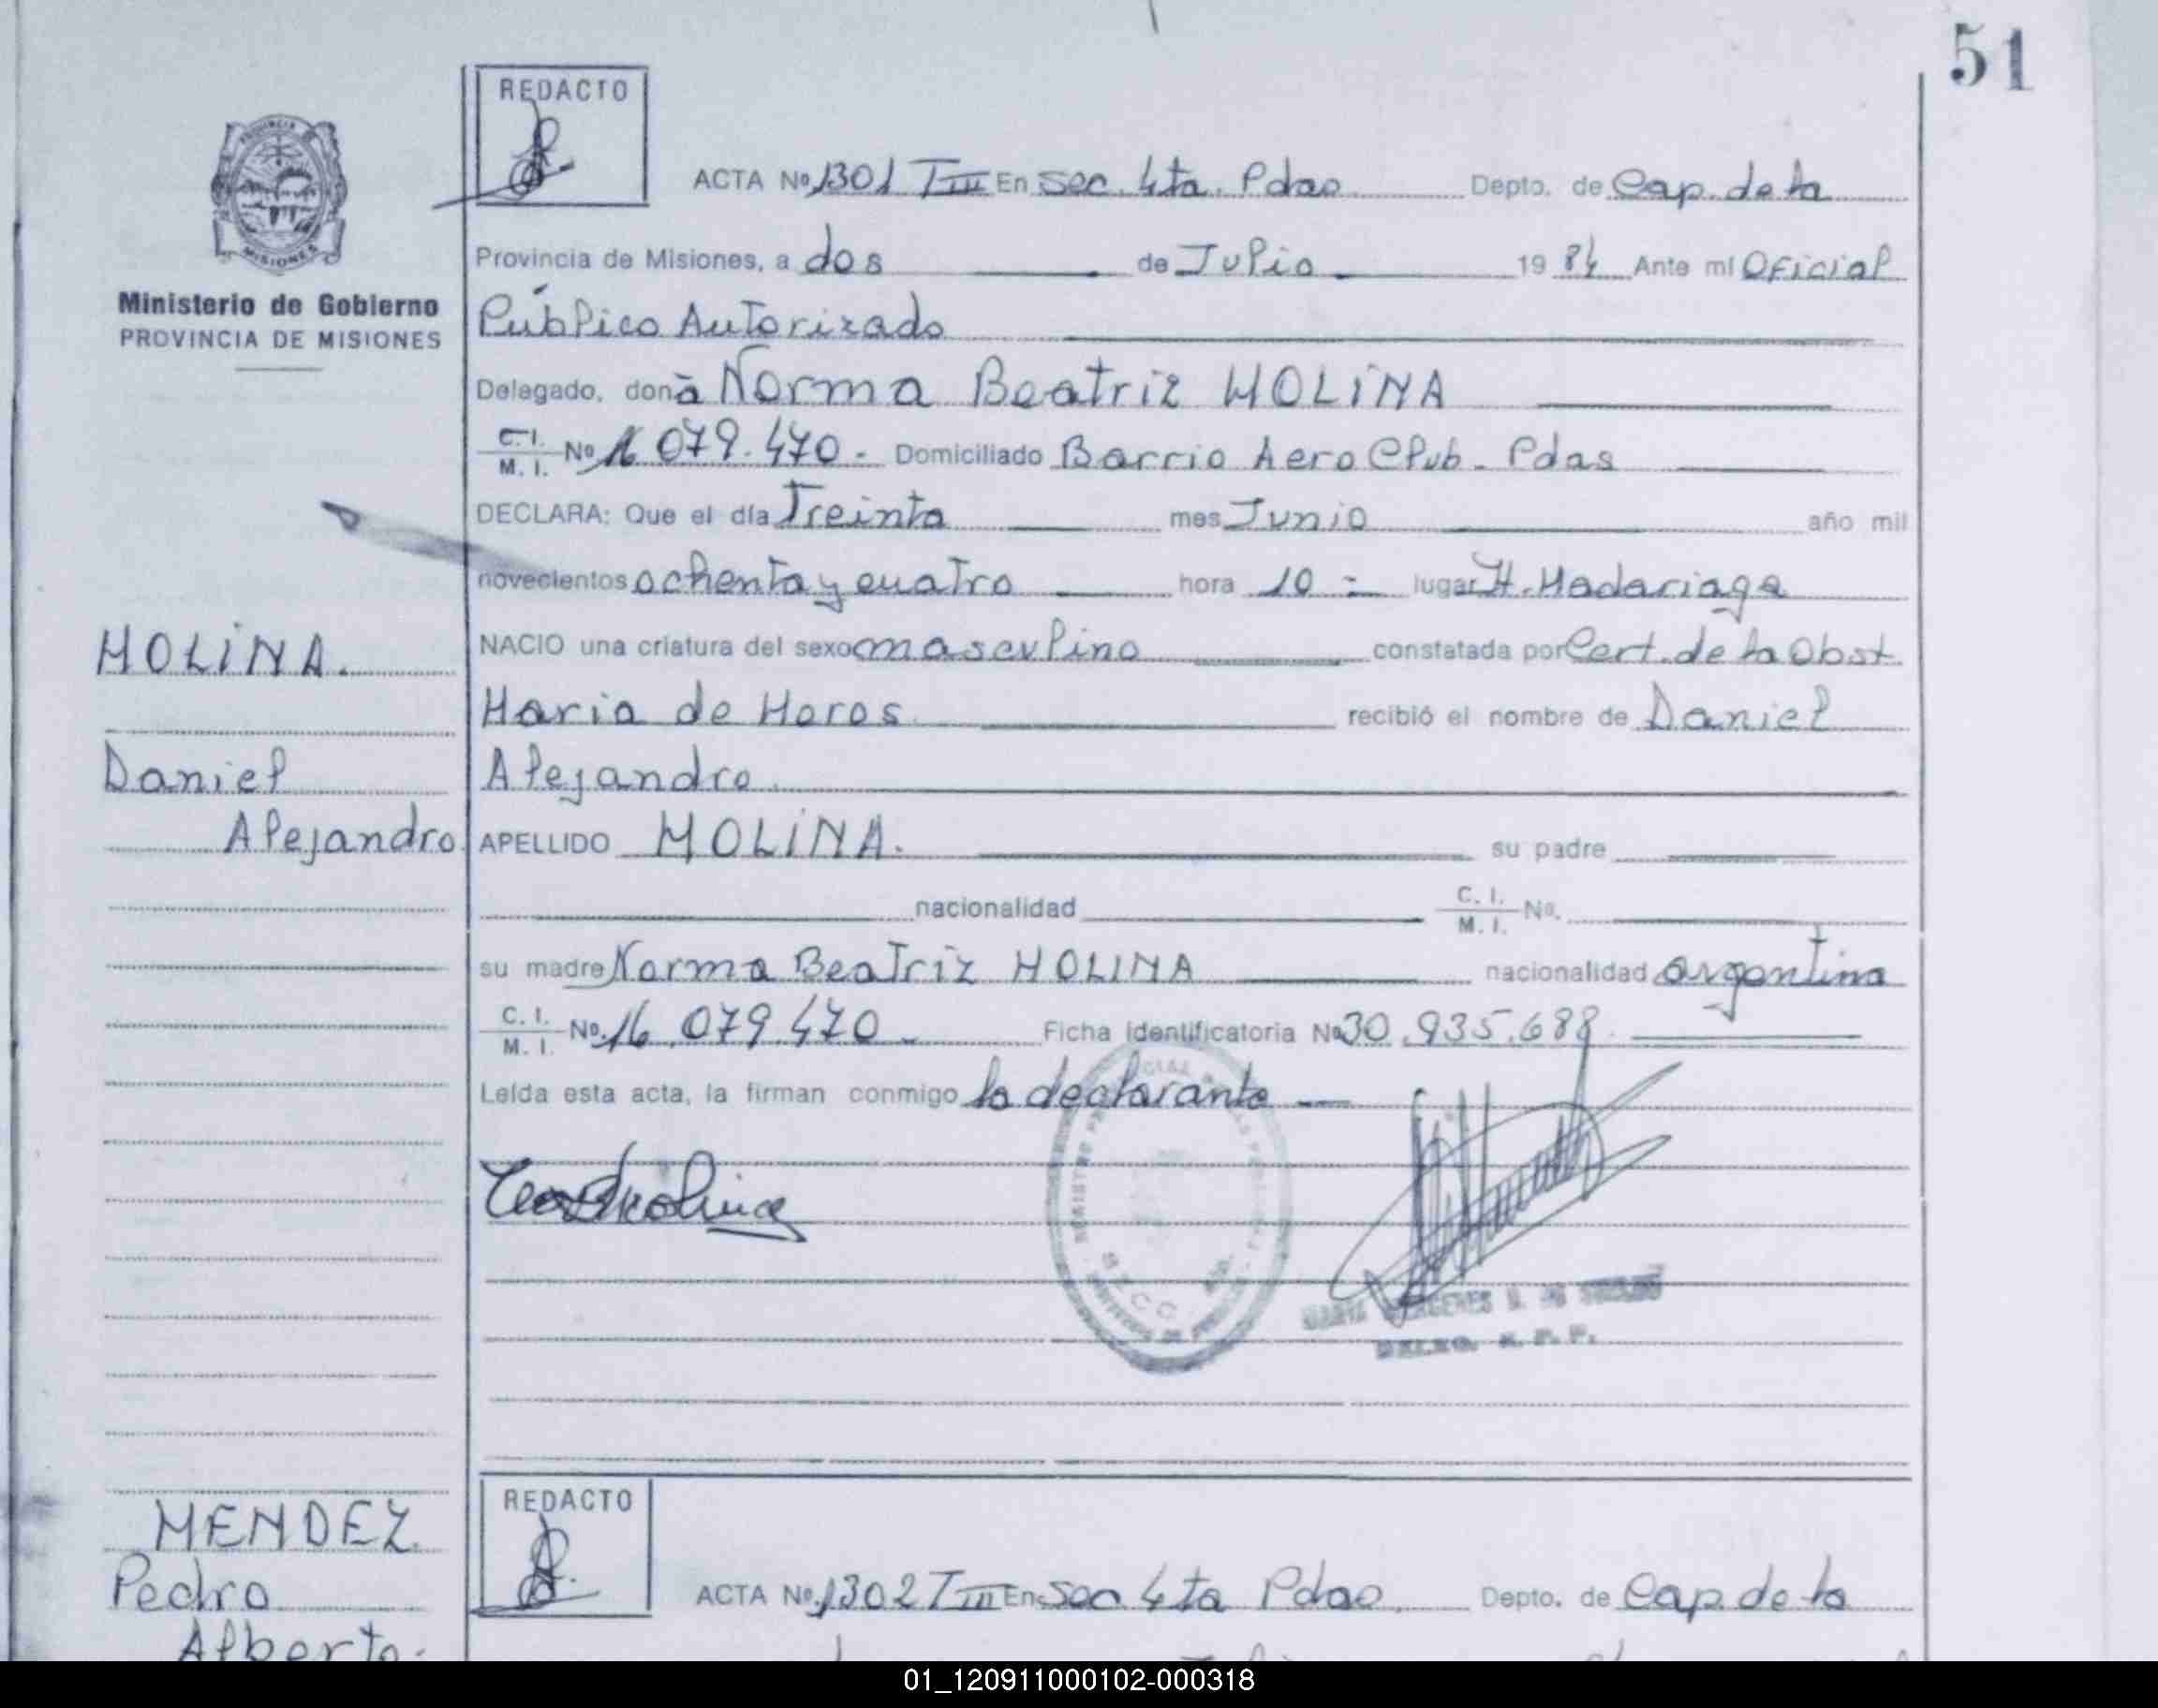 51
REDACTO
ACTA Nº 1301 TIII En Sec. 4ta. Pdas. Depto. de Cap. de la
Provincia de Misiones, a dos de Julio 1984 Ante mi Oficial
Ministerio de Gobierno
PROVINCIA DE MISIONES
Público Autorizado
Delegado, doña Norma Beatriz MOLINA
C. I. M. I. Nº 16 079.470. Domiciliado Barrio Aero Club. Pdas
DECLARA: Que el día Treinta mes Junio año mil
novecientos ochenta y cuatro hora 10 lugar H. Madariaga
MOLINA.
NACIO una criatura del sexo masculino constatada por Cert. de la Obst.
Maria de Moros recibió el nombre de Daniel
Daniel
Alejandro.
Alejandro.
APELLIDO MOLINA. su padre
nacionalidad C. I. M. I. Nº.
su madre Norma Beatriz MOLINA nacionalidad argentina
C. I. M. I. Nº. 16.079.470 Ficha identificatoria Nº 30.935.688.
Leída esta acta, la firman conmigo la declarante
MENDEZ
Pedro
Alberto.
REDACTO
ACTA Nº. 1302 TIII En Sec 4ta Pdas. Depto. de Cap. de la
01_120911000102-000318